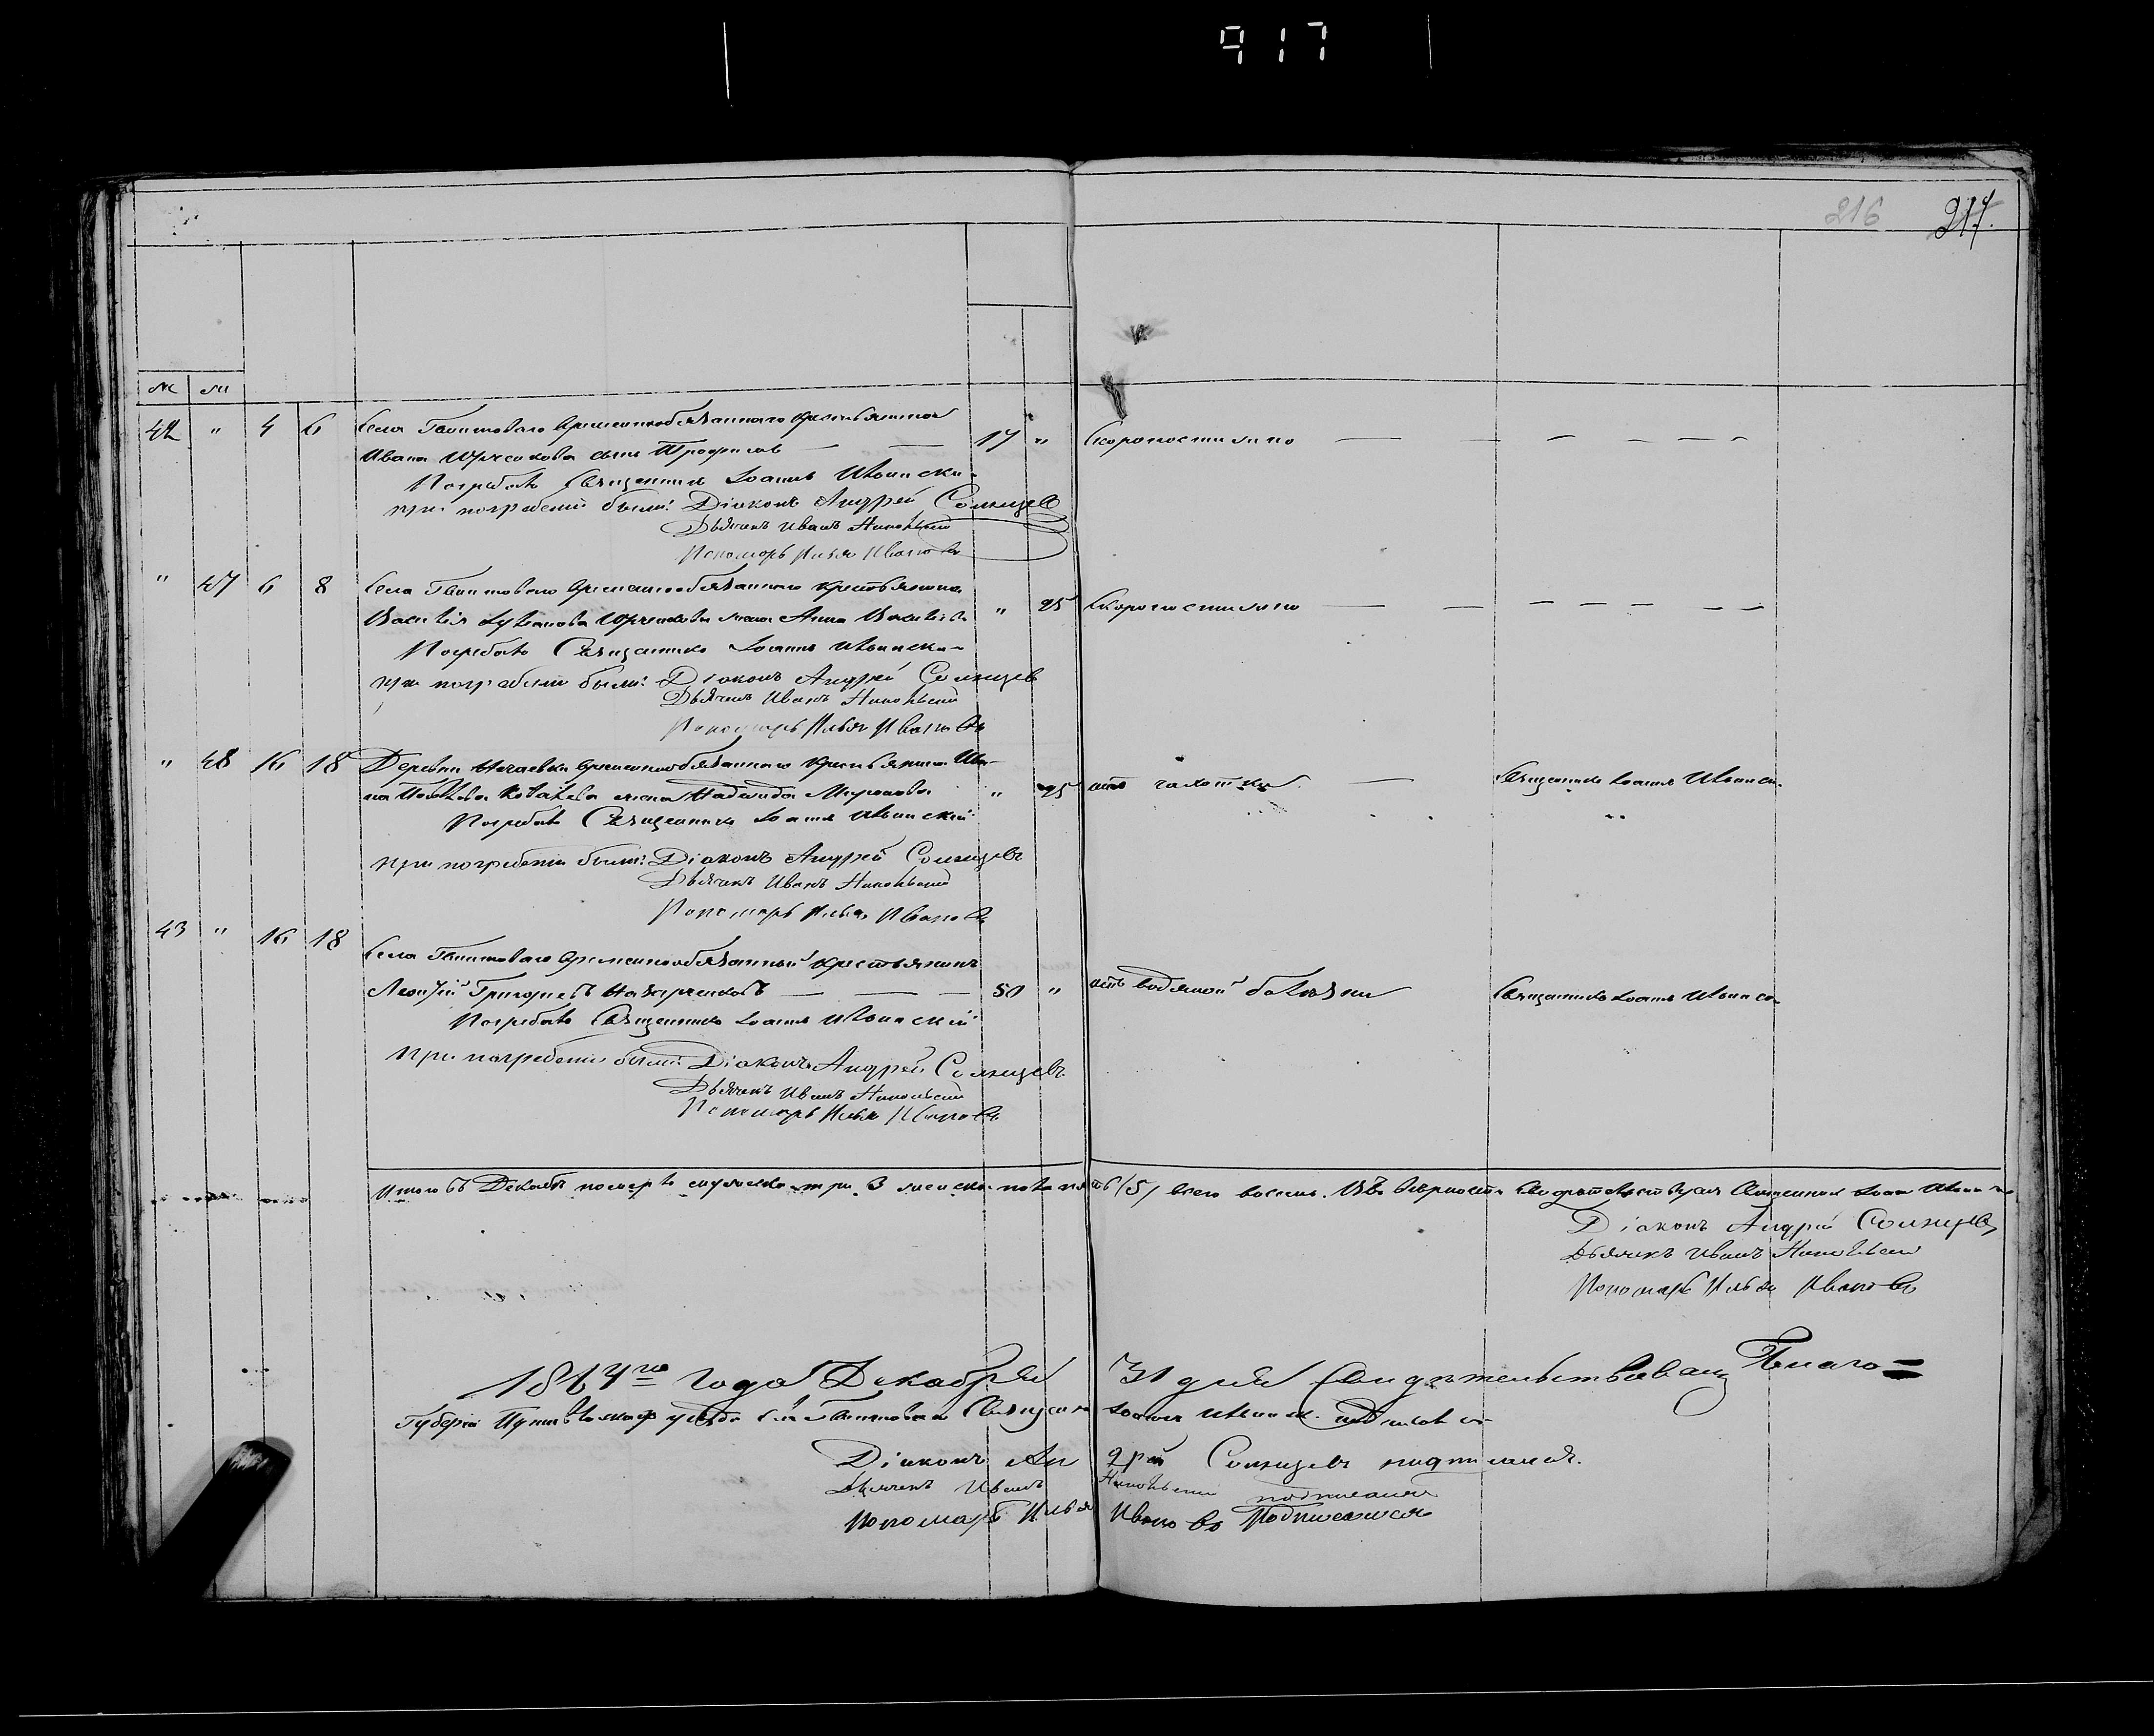 917
216 217.
м м
42 " 4 6 Села Гвинтоваго временнообязаннаго крестьянина
Ивана Юрченкова сынъ Трофимъ — — 17 " Скоропостижно — — — — — — —
Погребалъ Священникъ Іоаннъ
при погребеніи были: Діаконъ Андрей Солнцевъ
Дьячекъ Иванъ Никольскій
Пономарь Илья Ивановъ
" 47 6 8 Села Гвинтоваго временнообязаннаго крестьянина
Василія Юрченкова жена Анна " 25 Скоропостижно — — — — — — —
Погребалъ Священникъ Іоаннъ
при погребеніи были: Діаконъ Андрей Солнцевъ
Дьячекъ Иванъ Никольскій
Пономарь Илья Ивановъ
" 48 16 18 Деревни Нечаевки временнообязаннаго крестьянина Ива-
на жена Надежда Миронова " 25 отъ чахотки — Священникъ Іоаннъ
Погребалъ Священникъ Іоаннъ
при погребеніи были: Діаконъ Андрей Солнцевъ
Дьячекъ Иванъ Никольскій
Пономарь Илья Ивановъ
43 " 16 18
Села Гвинтоваго временнообязанный крестьянинъ
Григорьевъ — — — 50 " отъ водяной болѣзни Священникъ Іоаннъ
Погребалъ Священникъ Іоаннъ
При погребеніи были: Діаконъ Андрей Солнцевъ
Дьячекъ Иванъ Никольскій
Пономарь Илья Ивановъ
Итого въ Декабрѣ померло мужеска три 3 женска пола пять /5/ всего восемь. Въ вѣрности Священникъ Іоаннъ
Діаконъ Андрей Солнцевъ
Дьячекъ Иванъ Никольскій
Пономарь Илья Ивановъ
1864го года Декабря 31 дня Свидѣтельствовалъ
Губерніи Путивльскаго уѣзда села Гвинтоваго Священникъ Іоаннъ
Діаконъ Андрей Солнцевъ подписался.
Дьячекъ Иванъ Никольскій подписался
Пономарь Илья Ивановъ Подписался